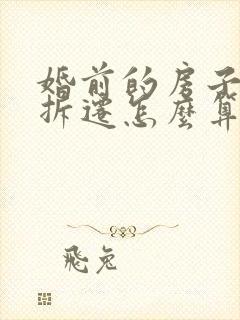 婚前的房子
拆迁怎麼算
飛兔